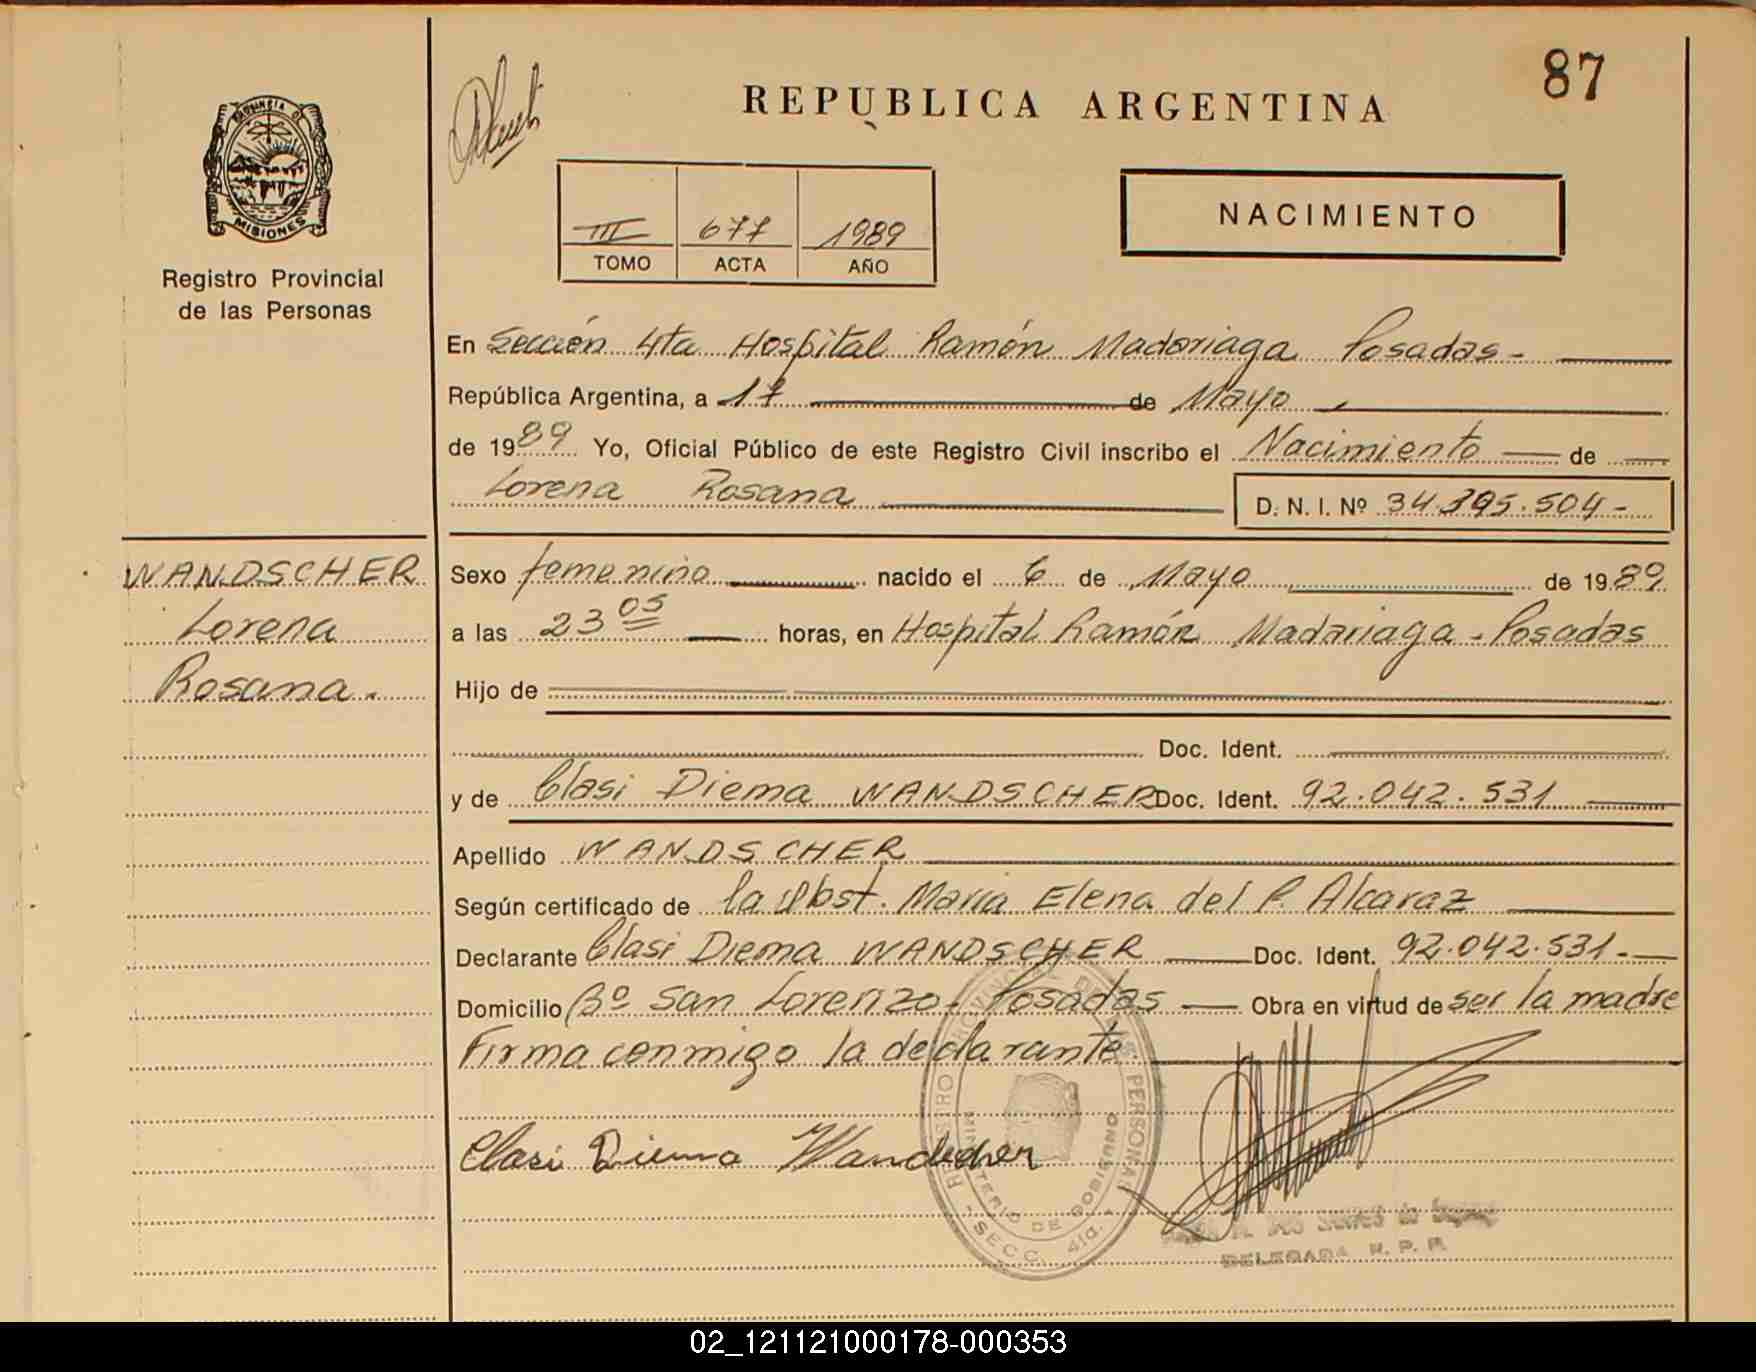 87
REPUBLICA ARGENTINA
PROVINCIA DE
MISIONES
Registro Provincial
de las Personas
III 677 1989
TOMO ACTA AÑO
NACIMIENTO
En Sección 4ta Hospital Ramón Madariaga Posadas-
República Argentina, a 17 de Mayo
de 1989 Yo, Oficial Público de este Registro Civil inscribo el Nacimiento de
Lorena Rosana D. N. I. Nº 34.395.504-
WANDSCHER
Lorena
Rosana.
Sexo femenino nacido el 6 de Mayo de 1989
a las 23 05 horas, en Hospital Ramón Madariaga - Posadas
Hijo de
Doc. Ident.
y de Clasi Diema WANDSCHER Doc. Ident. 92.042.531
Apellido WANDSCHER
Según certificado de la Obst. María Elena del P. Alcaraz
Declarante Clasi Diema WANDSCHER Doc. Ident. 92.042.531-
Domicilio Bº San Lorenzo - Posadas Obra en virtud de ser la madre
Firma conmigo la declarante
Clasi Diema Wandscher
REGISTRO PROVINCIAL DE LAS PERSONAS
MINISTERIO DE GOBIERNO
- SECC. 4ta. -
DELEGADA R. P. P.
02_121121000178-000353